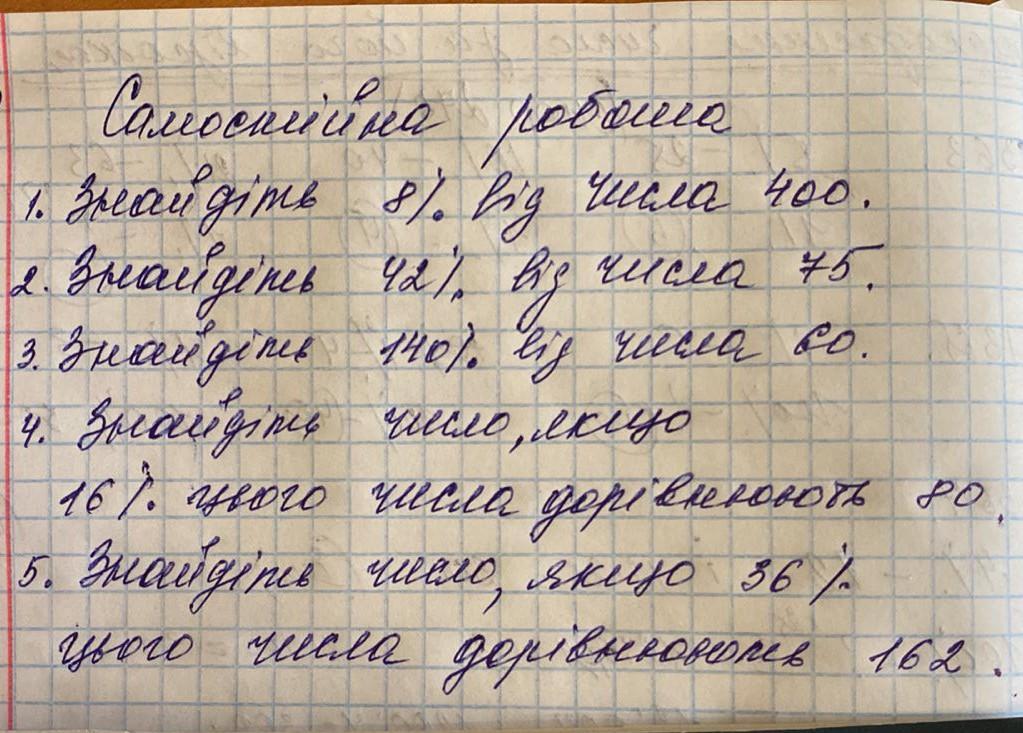 Самостійна робота
1. Знайдіть 8% від числа 400.
2. Знайдіть 42% від числа 75.
3. Знайдіть 140% від числа 60.
4. Знайдіть число, якщо
16% цього числа дорівнюють 80.
5. Знайдіть число, якщо 36%
цього числа дорівнюють 162.